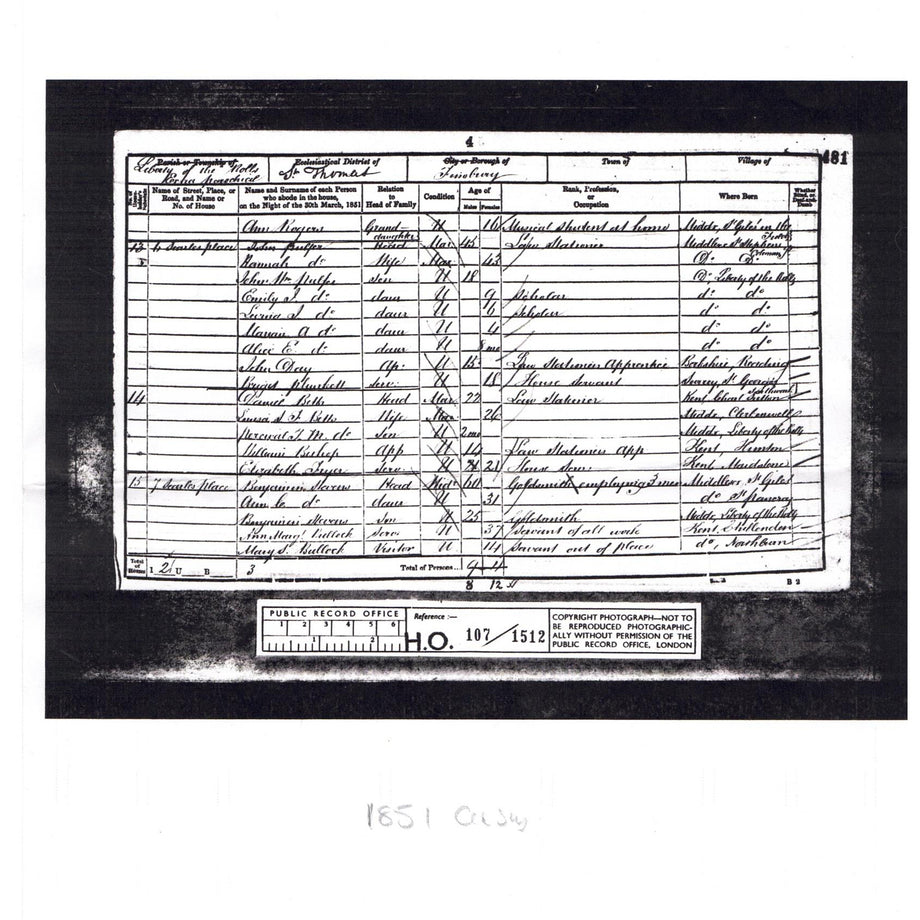 4
481
Parish or Township of Ecclesiastical District of City or Borough of Town of Village of
Liberty of the Rolls St Thomas Finsbury
Name of Street, Place, or Road, and Name or No. of House
Name and Surname of each Person who abode in the house, on the Night of the 30th March, 1851
Relation to Head of Family
Condition
Age of
Males Females
Rank, Profession, or Occupation
Where Born
Whether Blind, or Deaf-and-Dumb
Ann Rogers Grand-daughter U 16 Musical Student at home Middx St Giles in the
13 6 Searles place John Pulfer Head Mar 45 Law Stationer Middlesex St Stephen
Hannah do Wife Mar 43 Do Do
John Wm Pulfer Son U 18 Do Liberty of the Rolls
Emily J. do daur U 9 Scholar do do
J. do daur U 6 Scholar do do
A do daur U 4 do do
Alice E. do daur U 8 mo do do
John Day Ap: U 15 Law Stationers Apprentice Berkshire, Reading
Serv: U 18 House Servant Surrey, St Georges Southwark
14 Daniel Betts Head Mar 22 Law Stationer Kent, Chart Sutton
Betts Wife Mar 26 Middx, Clerkenwell
Percival do Son U 2 mo Middx, Liberty of the Rolls
William Bishop App U 14 Law Stationers App Kent, Hunton
Elizabeth Serv: U 21 House Serv: Kent, Maidstone
15 7 Searles place Benjamin Stevens Head Widr Goldsmith employing 3 men Middlesex, St Giles
Ann C do daur U 31 do St Pancras
Benjamin Stevens Son U 25 Goldsmith Middx, Liberty of the Rolls
Ann Mary Bullock Serv: U 37 Servant of all work Kent,
Mary S. Bullock Visitor U 14 Servant out of place do,
Total of Houses 1 2 U B 3 Total of Persons... 9 4
8 12
B 2
PUBLIC RECORD OFFICE
1 2 3 4 5 6
1 2
Reference :—
H.O. 107/1512
COPYRIGHT PHOTOGRAPH—NOT TO
BE REPRODUCED PHOTOGRAPHIC-
ALLY WITHOUT PERMISSION OF THE
PUBLIC RECORD OFFICE, LONDON
1851 Census